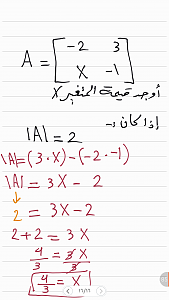 A = [ -2 3
x -1 ]
أوجد قيمة المتغير x
إذا كان :-
|A| = 2
|A| = (3 · x) - (-2 · -1)
|A| = 3x - 2
↓
2 = 3x - 2
2 + 2 = 3x
4/3 = 3x/3
4/3 = x